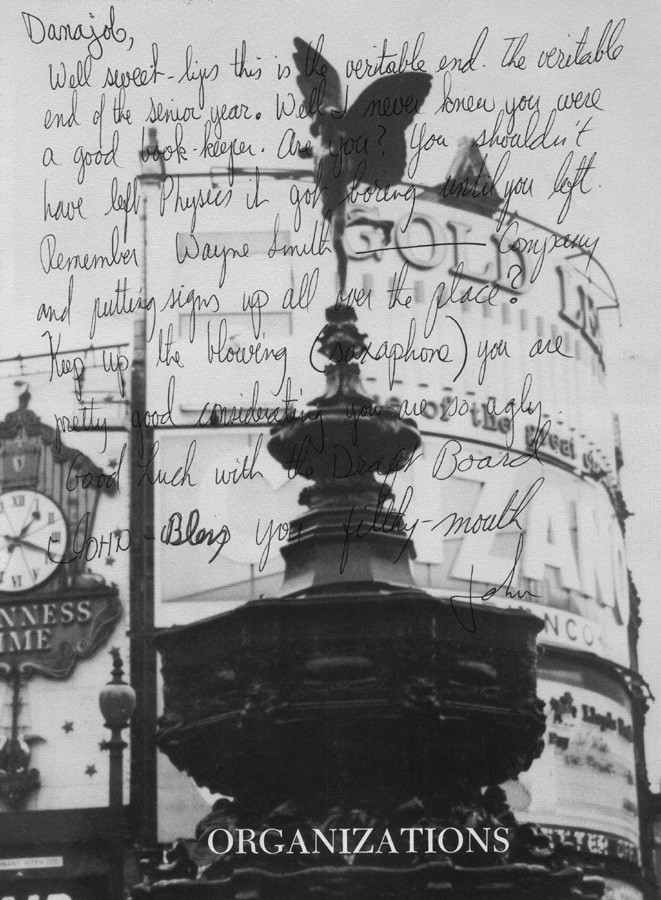 Danajob,
Well sweet-lips this is the veritable end. The veritable
end of the senior year. Well I never knew you were
a good book-keeper. Are you? You shouldn't
have left Physics it got boring until you left.
Remember Wayne Smith Company
and putting signs up all over the place?
Keep up the blowing (saxaphone) you are
pretty good considerating you are so ugly.
Good Luck with the Draft Board
JOHN - Bless you filthy-mouth
John
GOLD
of the great
NNESS
IME
ZAN
NCO
ORGANIZATIONS